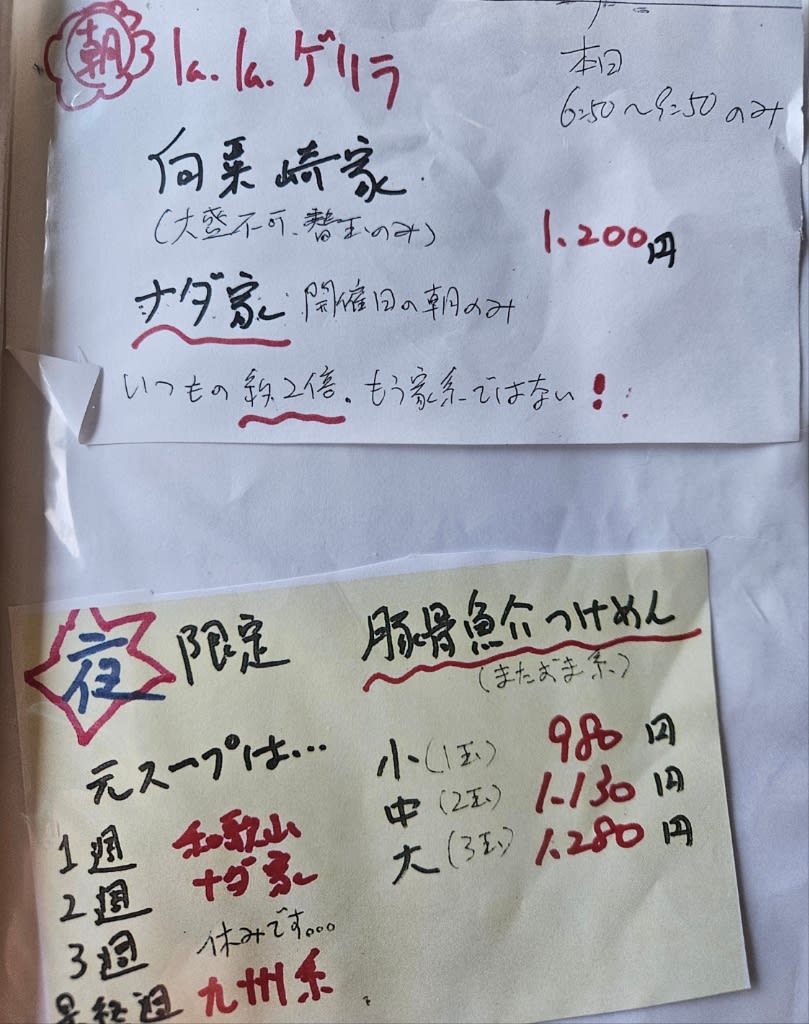 朝 la.la.ゲリラ
本日
6:50～9:50のみ
向粟崎家
(大盛不可、替玉のみ)
1.200円
ナダ家 開催日の朝のみ
いつもの約2倍。もう家系ではない!
夜 限定
豚骨魚介つけめん
(またおま系)
元スープは…
小(1玉) 980円
中(2玉) 1.130円
大(3玉) 1.280円
1週 和歌山
2週 ナダ家
3週 休みです。。。
最終週 九州系